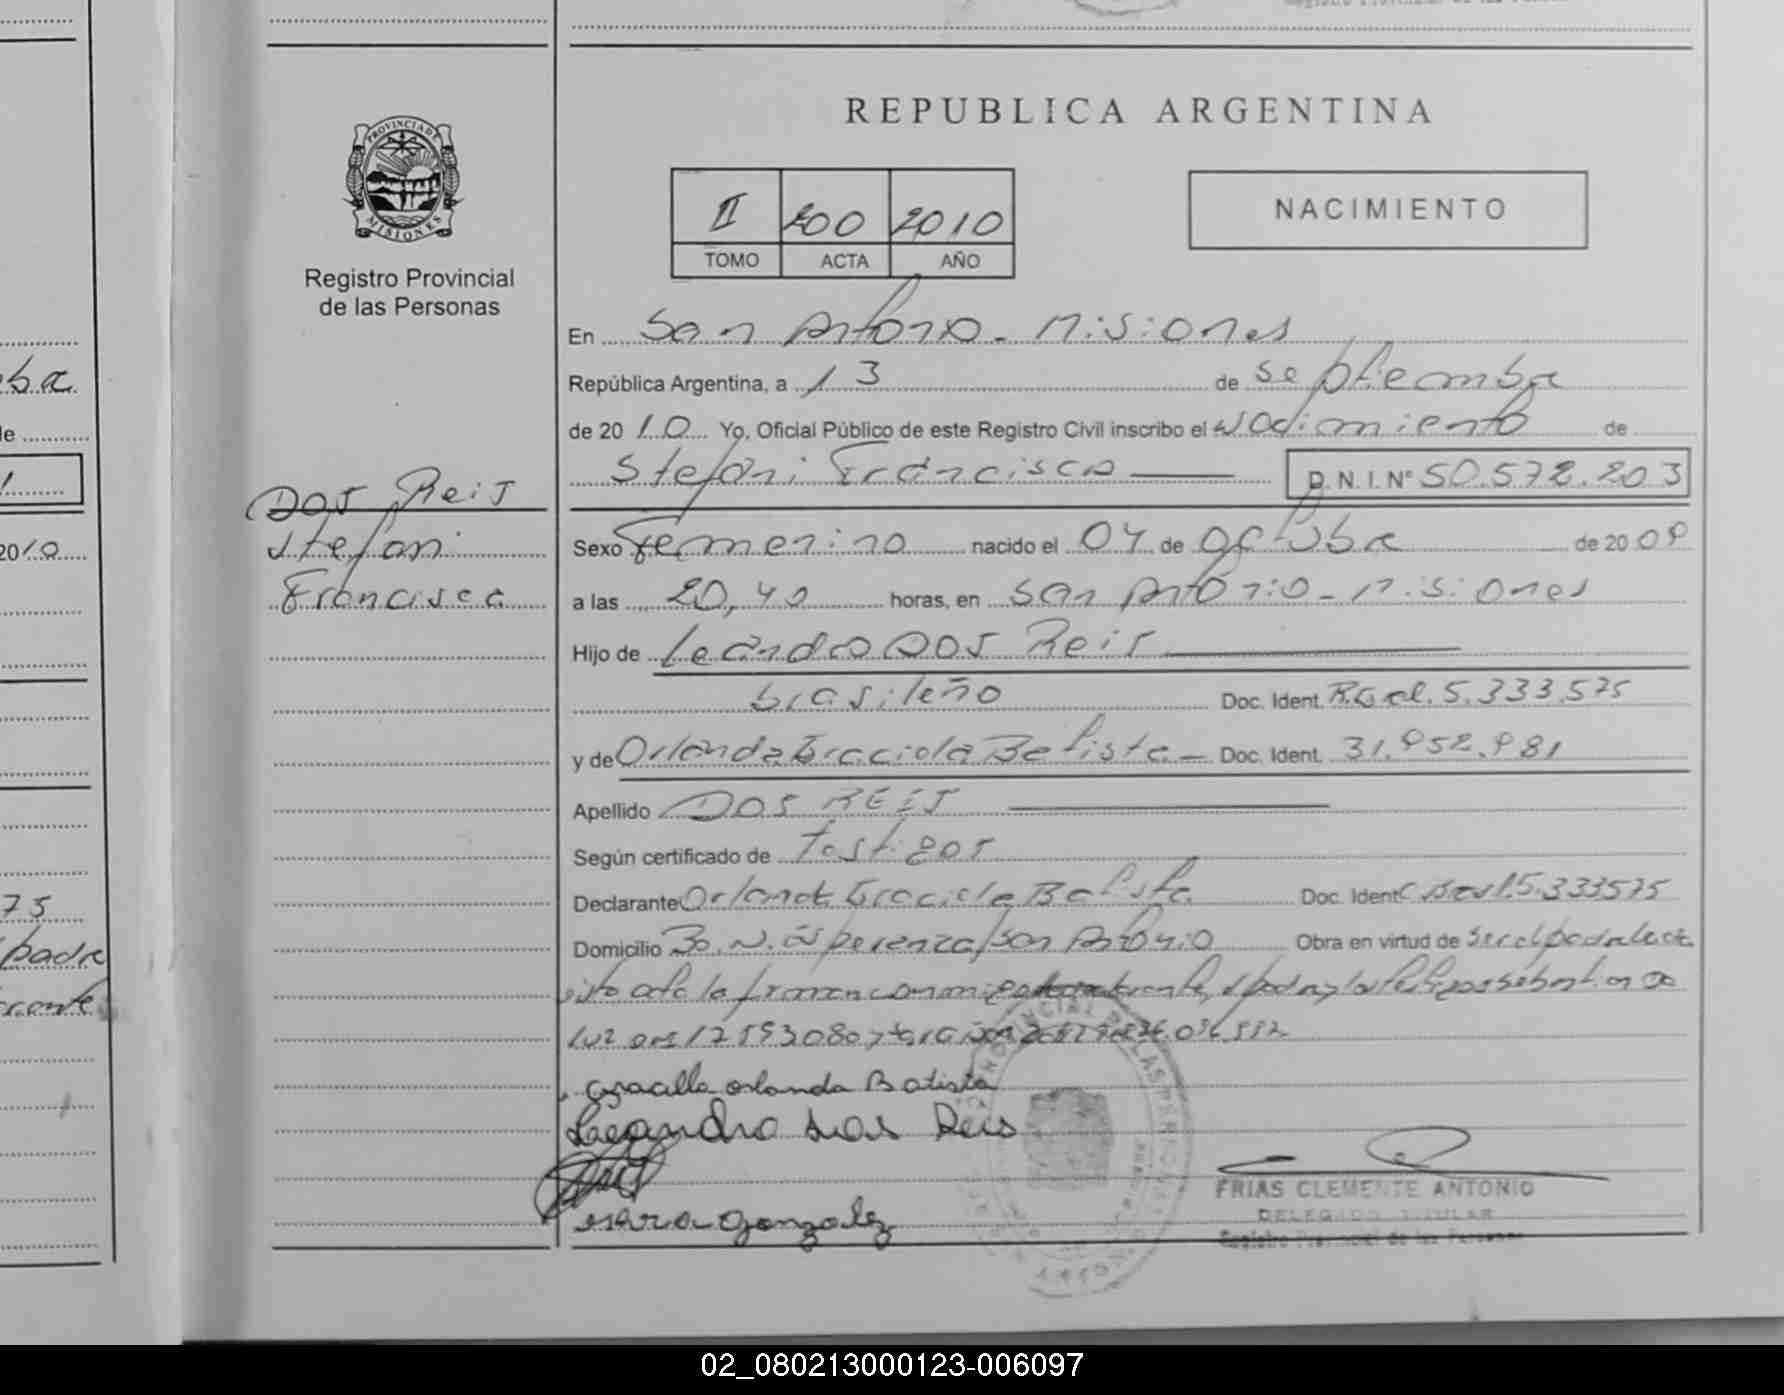 REPUBLICA ARGENTINA
PROVINCIA DE
MISIONES
Registro Provincial
de las Personas
II 200 2010
TOMO ACTA AÑO
NACIMIENTO
En San Antonio - Misiones
República Argentina, a 13 de septiembre
de 2010 Yo, Oficial Público de este Registro Civil inscribo el Nacimiento de
Stefani Francisca D.N.I. Nº 50.572.203
DOS Reis
Stefani
Francisca
Sexo Femenino nacido el 04 de octubre de 2009
a las 20,40 horas, en San Antonio - Misiones
Hijo de Leandro DOS Reis
brasileño Doc. Ident. 5.333.575
y de Orlanda Graciela Batista Doc. Ident. 31.952.981
Apellido DOS REIS
Según certificado de Testigos
Declarante Orlanda Graciela Batista Doc. Ident 5.333575
Domicilio Bo. N. Esperanza/San Antonio Obra en virtud de
Gracilla orlanda Batista
Leandro dos Reis
Gonzalez
FRIAS CLEMENTE ANTONIO
DELEGADO TITULAR
Registro Provincial de las Personas
2010
75
padre
02_080213000123-006097